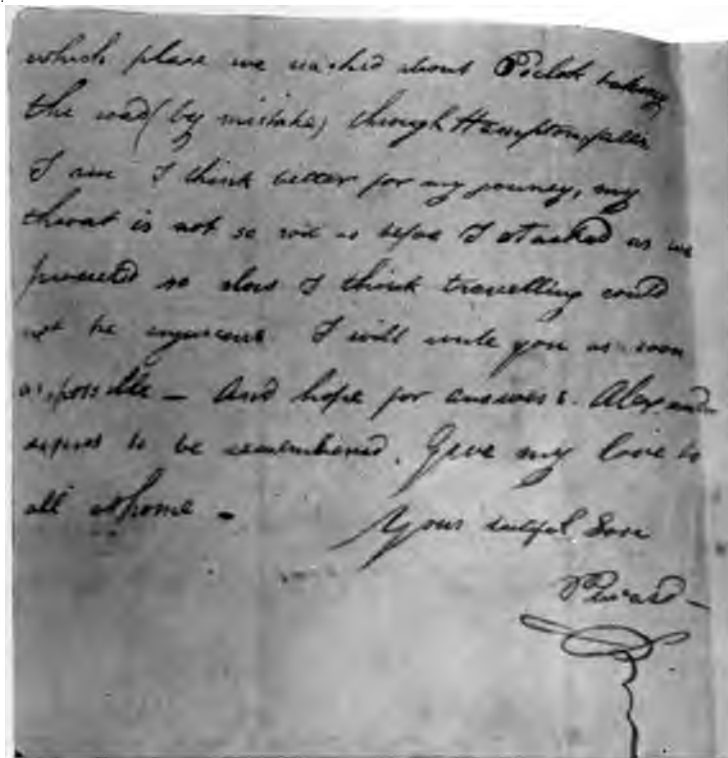 which place we reached about 8'Oclock taking
the road (by mistake) through Hampton falls
I am I think better for my journey, my
throat is not so sore as before I started as we
proceeded so slow I think travelling could
not be injurious I will write you as soon
as possible — And hope for answers. Alexander
to be remembered. Give my love to
all at home —
Your dutiful Son